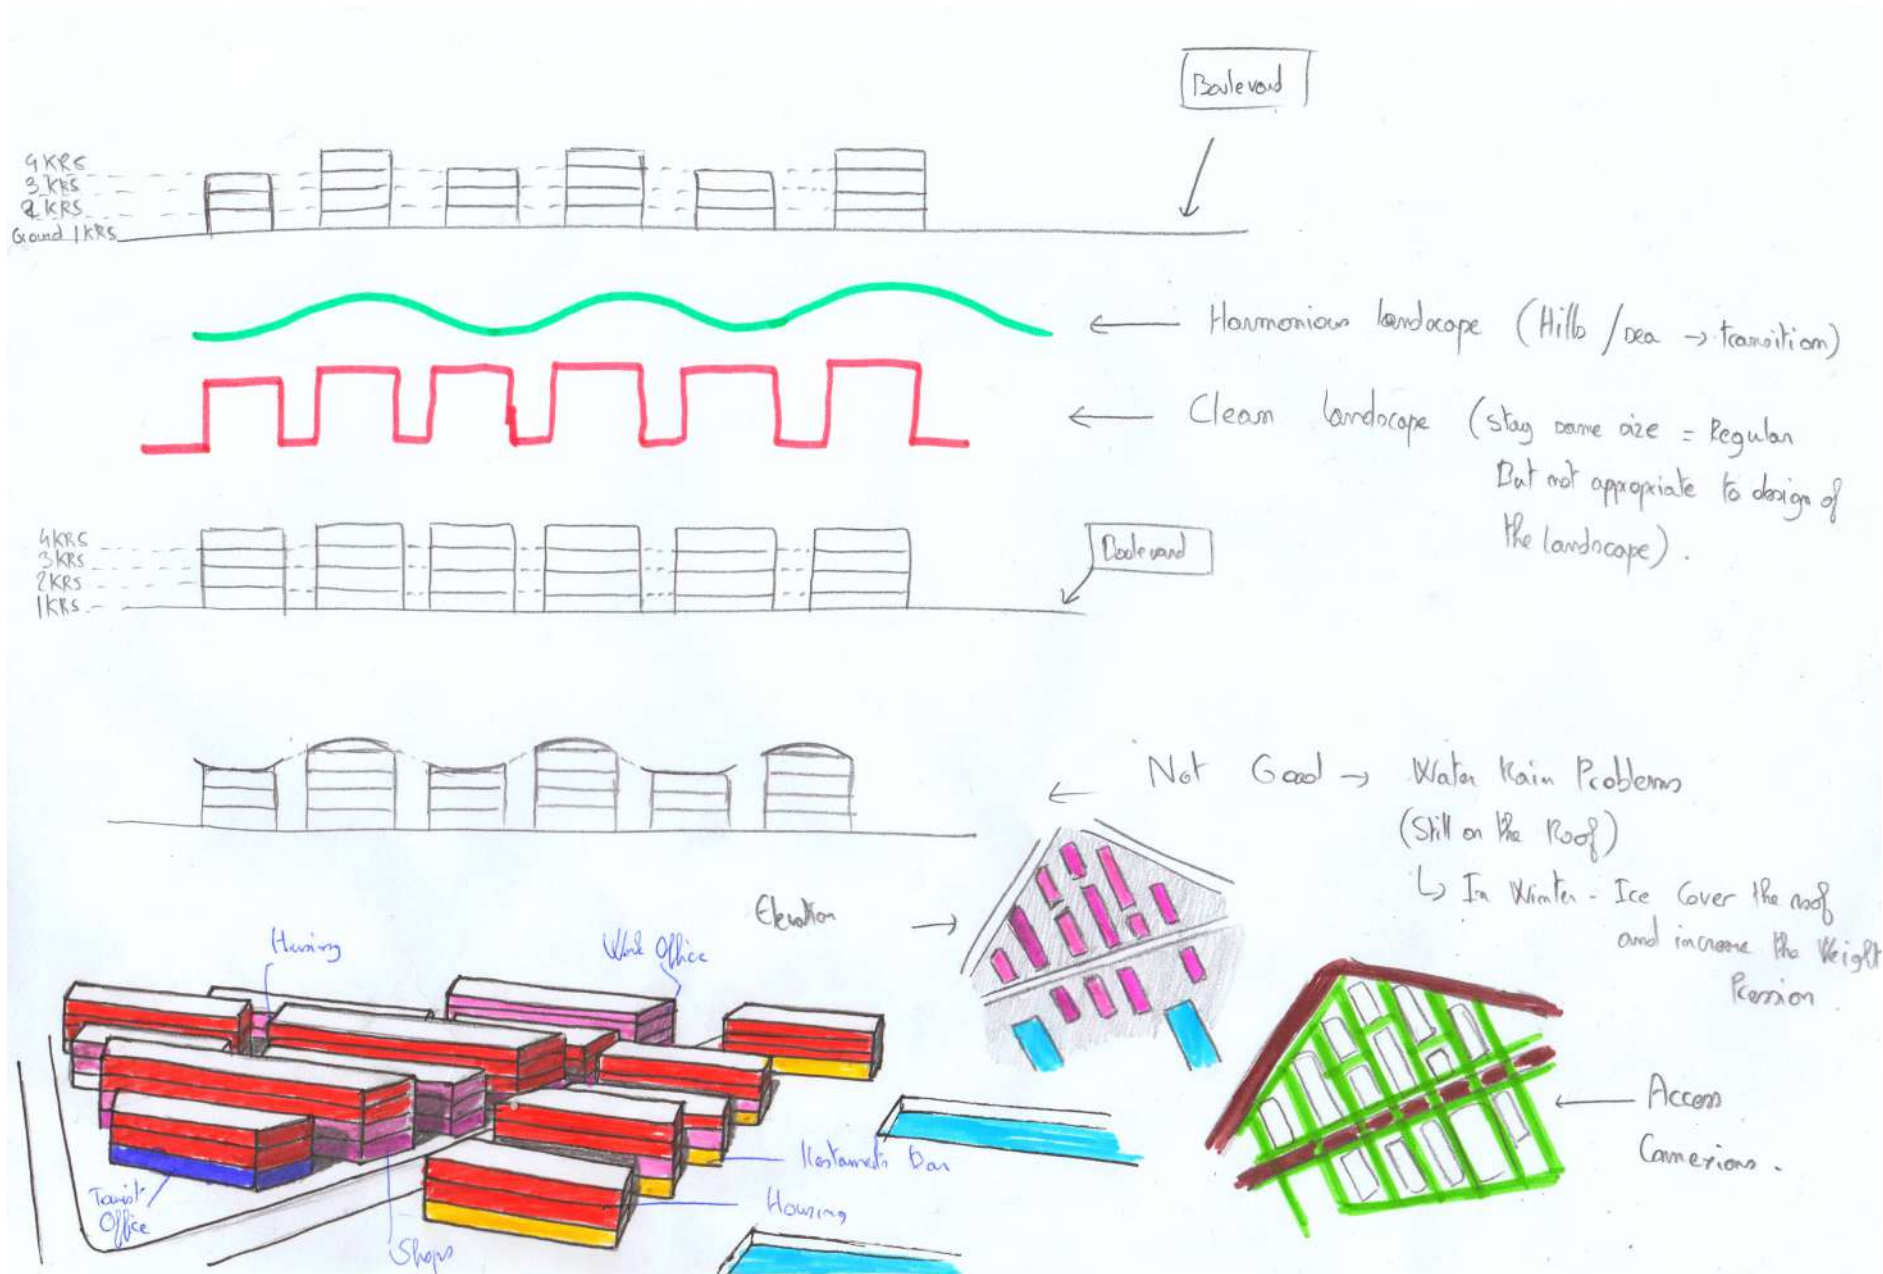 Boulevard
4 KRS
3 KRS
2 KRS
Ground 1 KRS
Harmonious landscape (Hills / sea → transition)
Clean landscape (stay same size = Regular
But not appropriate to design of
the landscape).
4 KRS
3 KRS
2 KRS
1 KRS
Boulevard
Not Good → Water Rain Problems
(Still on the Roof)
↳ In Winter - Ice cover the roof
and increase the Weight
Pression
Elevation
Housing
Work Office
Access
Connexions.
Restaurants Bar
Housing
Tourist
Office
Shops